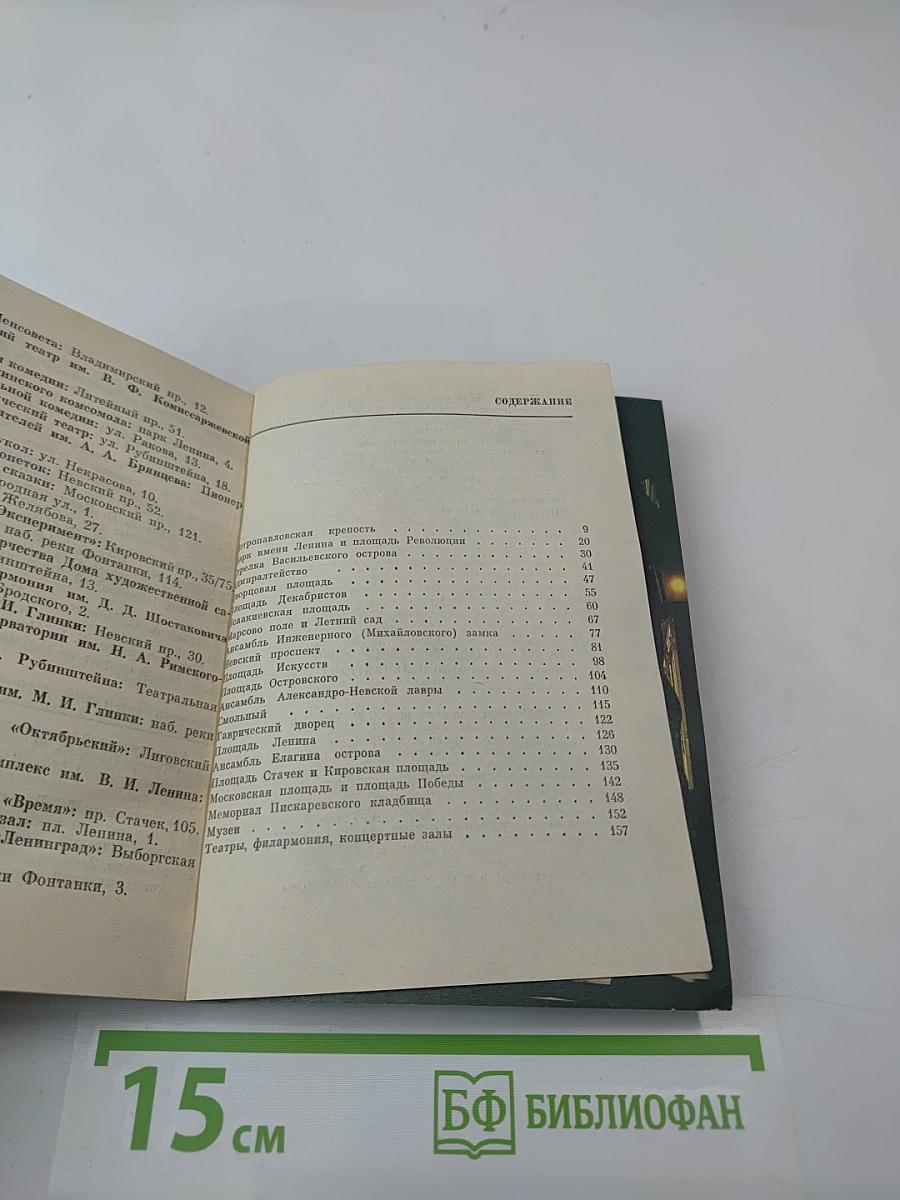 Ленсовета: Владимирский пр., 12.
театр им. В. Ф. Комиссаржевской
комедии: Литейный пр., 51.
комсомола: парк Ленина, 4.
комедии: ул. Ракова, 13.
театр: ул. Рубинштейна, 18.
им. А. А. Брянцева: Пионер
ул. Некрасова, 10.
Невский пр., 52.
сказки: Московский пр., 121.
ул., 1.
Желябова, 27.
Эксперимент»: Кировский пр., 35/75
наб. реки Фонтанки, 114.
Дома художественной са-
13.
им. Д. Д. Шостаковича
Бродского, 2.
И. Глинки: Невский пр., 30.
им. Н. А. Римского-
Рубинштейна: Театральная
им. М. И. Глинки: наб. реки
«Октябрьский»: Лиговский
им. В. И. Ленина:
«Время»: пр. Стачек, 105.
зал: пл. Ленина, 1.
Ленинград»: Выборгская
Фонтанки, 3.
СОДЕРЖАНИЕ
етропавловская крепость . . . . . . . . . . 9
арк имени Ленина и площадь Революции . . . . . . 20
трелка Васильевского острова . . . . . . . . . 30
дмиралтейство . . . . . . . . . . . . 41
ворцовая площадь . . . . . . . . . . . 47
лощадь Декабристов . . . . . . . . . . . 55
саакиевская площадь . . . . . . . . . . . 60
Марсово поле и Летний сад . . . . . . . . . . 67
Ансамбль Инженерного (Михайловского) замка . . . . 77
Невский проспект . . . . . . . . . . . . 81
Площадь Искусств . . . . . . . . . . . . 98
Площадь Островского . . . . . . . . . . . 104
Ансамбль Александро-Невской лавры . . . . . . . 110
Смольный . . . . . . . . . . . . . . 115
Таврический дворец . . . . . . . . . . . 122
Площадь Ленина . . . . . . . . . . . . 126
Ансамбль Елагина острова . . . . . . . . . . 130
Площадь Стачек и Кировская площадь . . . . . . . 135
Московская площадь и площадь Победы . . . . . . . 142
Мемориал Пискаревского кладбища . . . . . . . . 148
Музеи . . . . . . . . . . . . . . . 152
Театры, филармония, концертные залы . . . . . . . 157
15 см
БФ БИБЛИОФАН